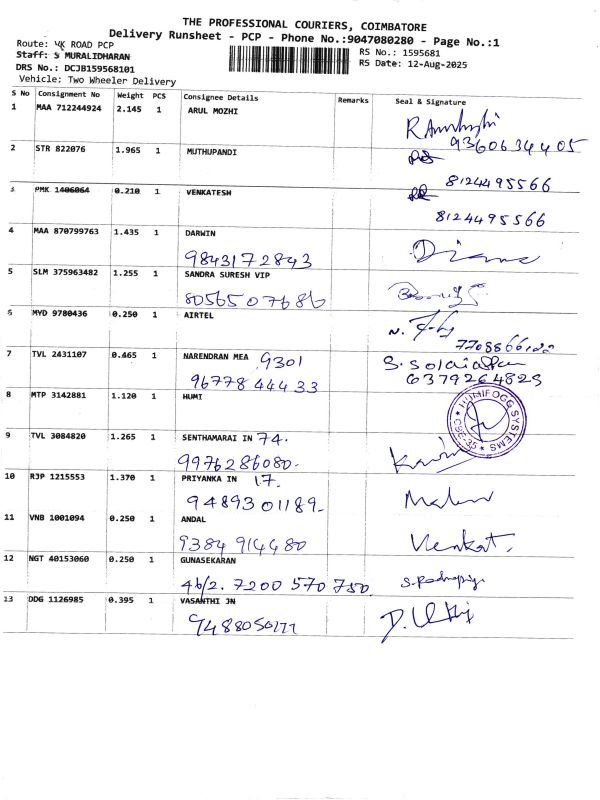 THE PROFESSIONAL COURIERS, COIMBATORE
Delivery Runsheet - PCP - Phone No.:9047080280 - Page No.:1
Route: VK ROAD PCP
Staff: S MURALIDHARAN
DRS No.: DCJB159568101
Vehicle: Two Wheeler Delivery
RS No.: 1595681
RS Date: 12-Aug-2025
S No Consignment No Weight PCS Consignee Details Remarks Seal & Signature
1 MAA 712244924 2.145 1 ARUL MOZHI
9360634405
2 STR 822076 1.965 1 MUTHUPANDI
8124495566
3 PMK 1406064 0.210 1 VENKATESH
8124495566
4 MAA 870799763 1.435 1 DARWIN
9843172843
5 SLM 375963482 1.255 1 SANDRA SURESH VIP
8056507686
6 MYD 9780436 0.250 1 AIRTEL
7 TVL 2431107 0.465 1 NARENDRAN MEA 9301
9677844433
6379264829
8 MTP 3142881 1.120 1 HUMI
HUMIFOGG SYSTEMS
CBE-35
9 TVL 3084820 1.265 1 SENTHAMARAI IN 74.
9976286080.
10 RJP 1215553 1.370 1 PRIYANKA IN 17.
9489301189.
11 VNB 1001094 0.250 1 ANDAL
9384914480
Venkat.
12 NGT 40153060 0.250 1 GUNASEKARAN
46/2. 7200 570 750
13 DDG 1126985 0.395 1 VASANTHI JN